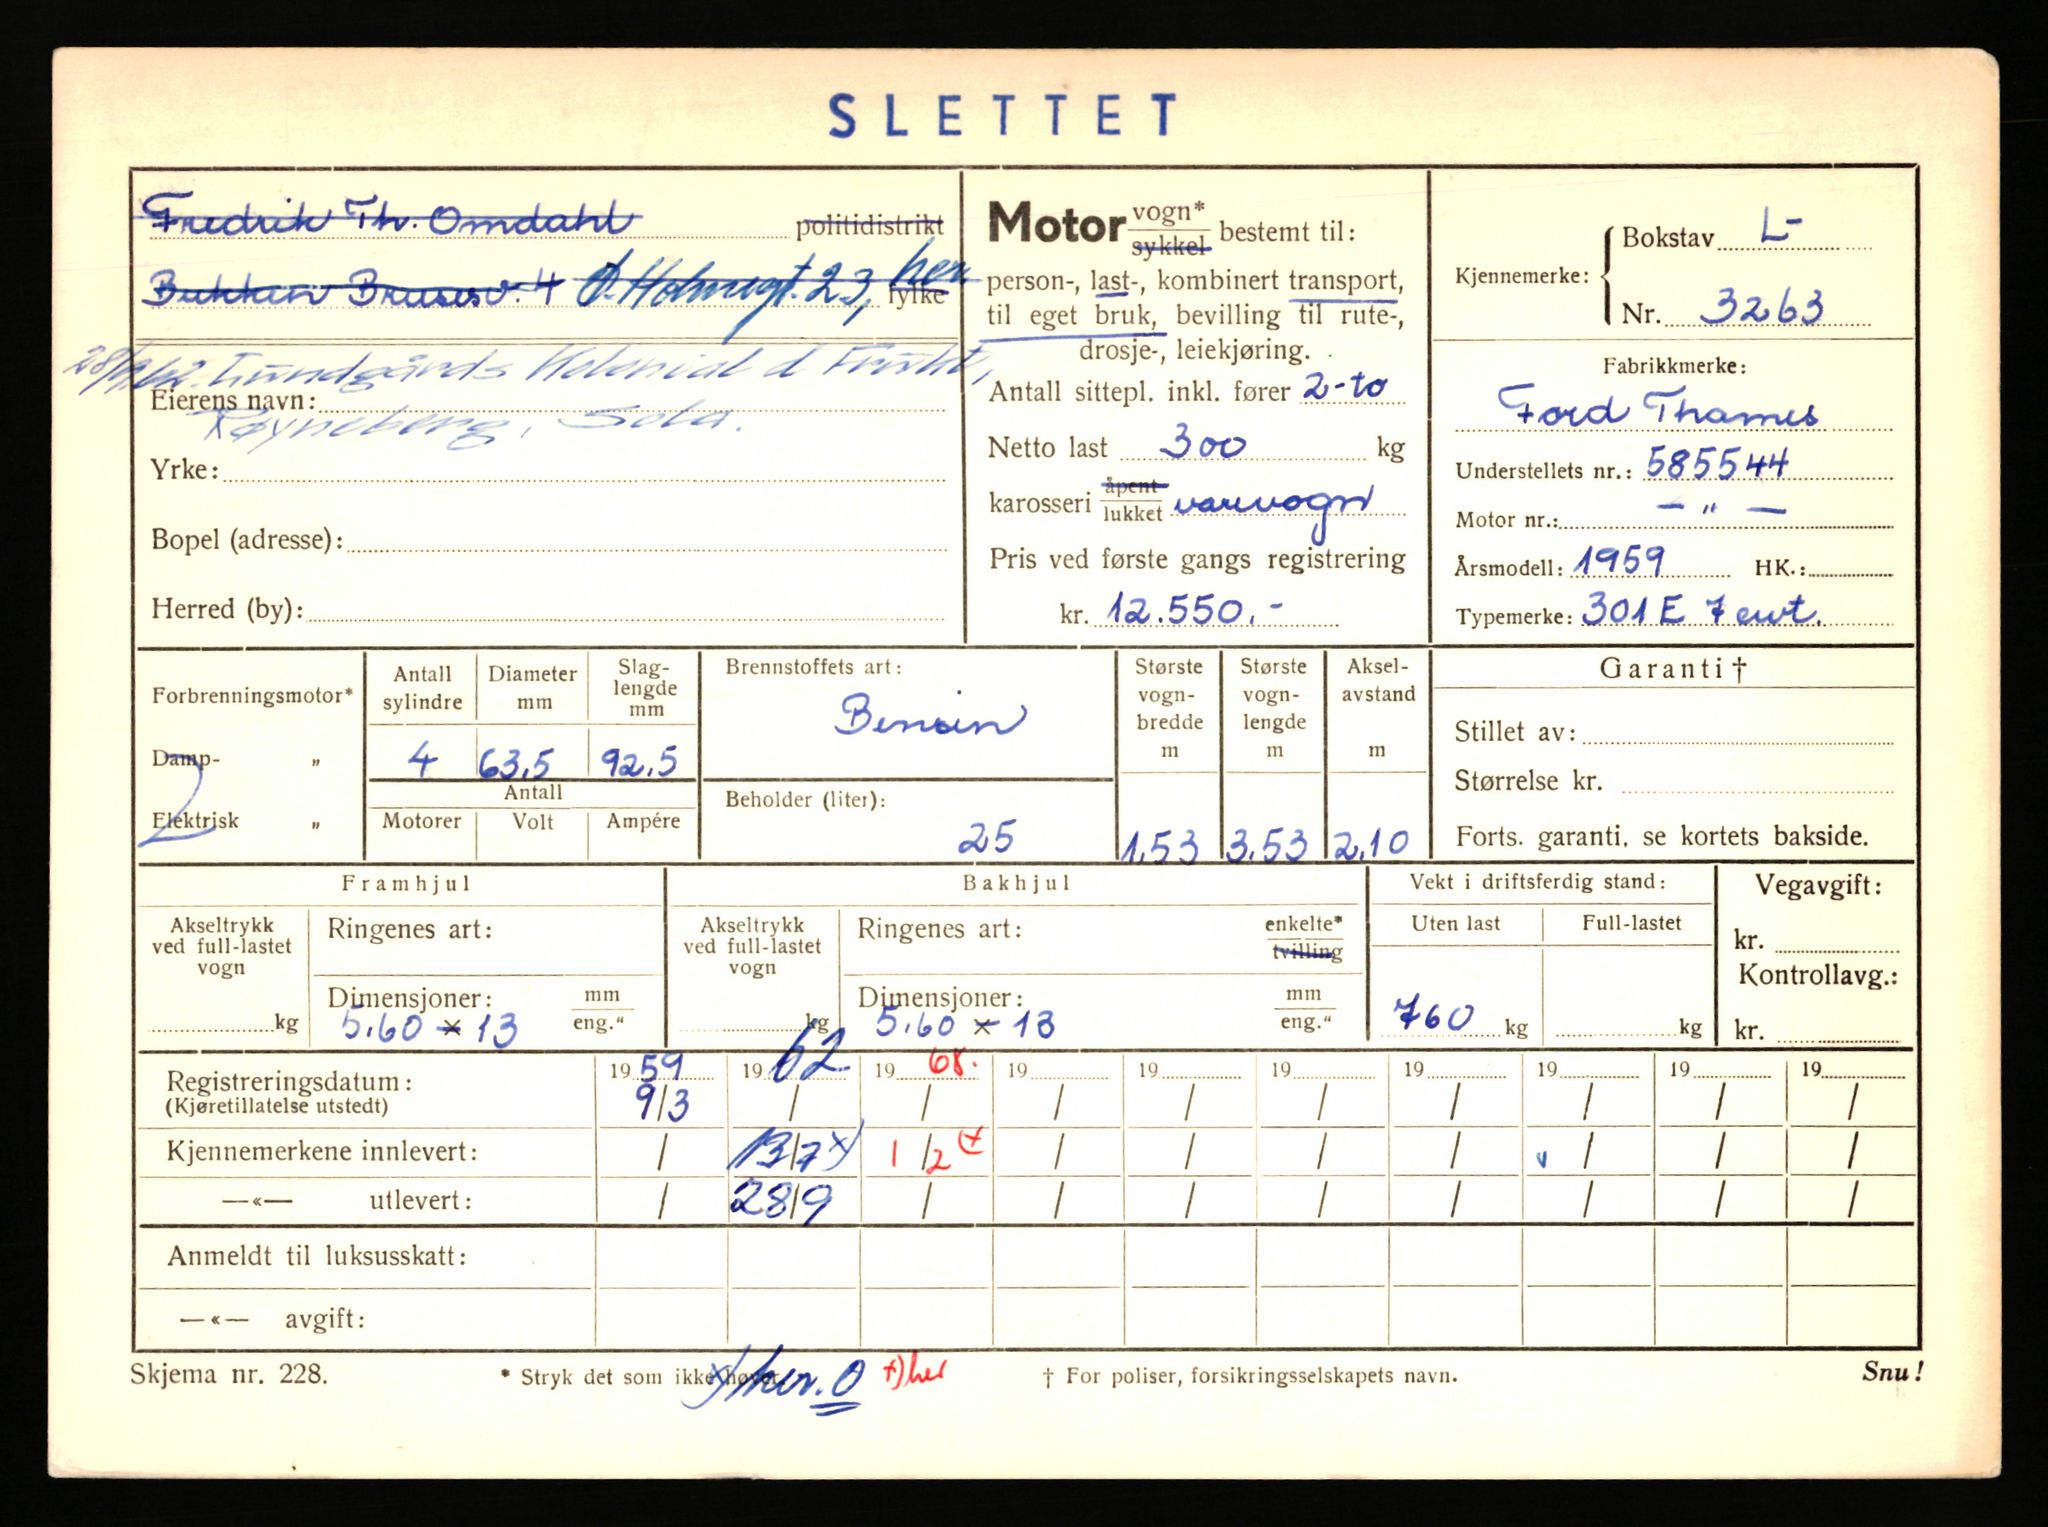 SLETTET
Fredrik Th. Omdahl politidistrikt
Bekken Brusesv. 4 O. Holmegt. 23, her fylke
28/9.62. Lundgårds Kolonial & Frukt,
Eierens navn:
Røyneberg, Sola.
Yrke:
Bopel (adresse):
Herred (by):
Motor vogn* sykkel bestemt til:
person-, last-, kombinert transport,
til eget bruk, bevilling til rute-,
drosje-, leiekjøring.
Antall sittepl. inkl. fører 2-to
Netto last 300 kg
karosseri åpent lukket varevogn
Pris ved første gangs registrering
kr. 12.550.-
Kjennemerke: Bokstav L-
Nr. 3263
Fabrikkmerke:
Ford Thames
Understellets nr.: 585544
Motor nr.: — „ —
Årsmodell: 1959 HK.:
Typemerke: 301 E 7 cwt.
Forbrenningsmotor*
Damp- „
Elektrisk „
2
Antall sylindre Diameter mm Slag-lengde mm
4 63,5 92,5
Antall
Motorer Volt Ampére
Brennstoffets art:
Bensin
Beholder (liter):
25
Største vogn-bredde m
1,53
Største vogn-lengde m
3,53
Aksel-avstand m
2,10
Garanti †
Stillet av:
Størrelse kr.
Forts. garanti, se kortets bakside.
Framhjul
Akseltrykk ved full-lastet vogn
kg
Ringenes art:
Dimensjoner: mm eng."
5.60 x 13
Bakhjul
Akseltrykk ved full-lastet vogn
kg
Ringenes art: enkelte* tvilling
Dimensjoner: mm eng."
5.60 x 13
Vekt i driftsferdig stand:
Uten last Full-lastet
760 kg kg
Vegavgift:
kr.
Kontrollavg.:
kr.
Registreringsdatum: 1959 1962 1968. 19 19 19 19 19 19 19
(Kjøretillatelse utstedt) 9/3 / / / / / / / / /
Kjennemerkene innlevert: / 13/7 x) 1/2 (x / / / / / / /
—«— utlevert: / 28/9 / / / / / / / /
Anmeldt til luksusskatt:
—«— avgift:
Skjema nr. 228. * Stryk det som ikke høver. x) her. O +) her † For poliser, forsikringsselskapets navn. Snu!